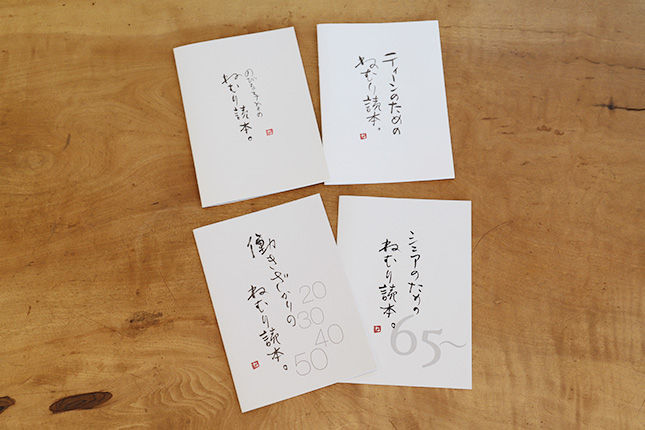 ねむり読本。
ティーンのための
ねむり読本。
働きざかりの
ねむり読本。
20
30
40
50
シニアのための
ねむり読本。
65~